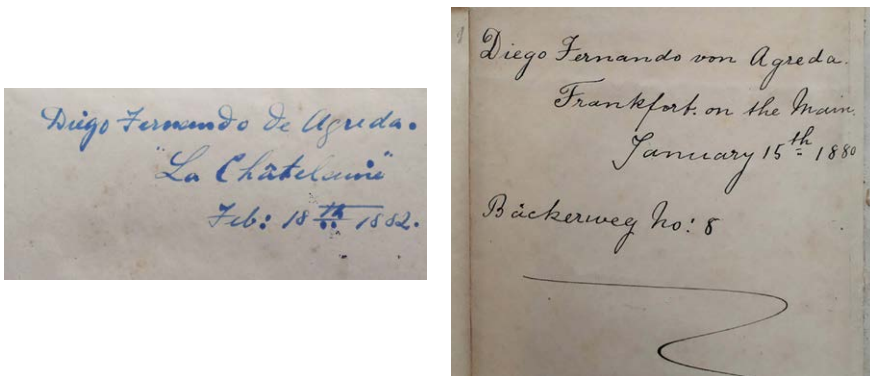 Diego Fernando de Agreda.
"La Châtelaine"
Feb: 18th 1882.
Diego Fernando von Agreda.
Frankfort. on the Main.
January 15th 1880
Bäckerweg No: 8